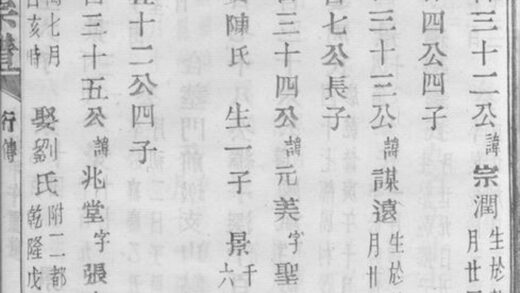 三十二公諱宗潤生於
月廿
四公四子
三十三公諱謀遠生於
月廿
七公長子
三十四公諱元美字聖
陳氏生一子景千
六
十二公四子
三十五公諱兆堂字張
七月
亥時
娶劉氏附一二都
乾隆戊
行傳